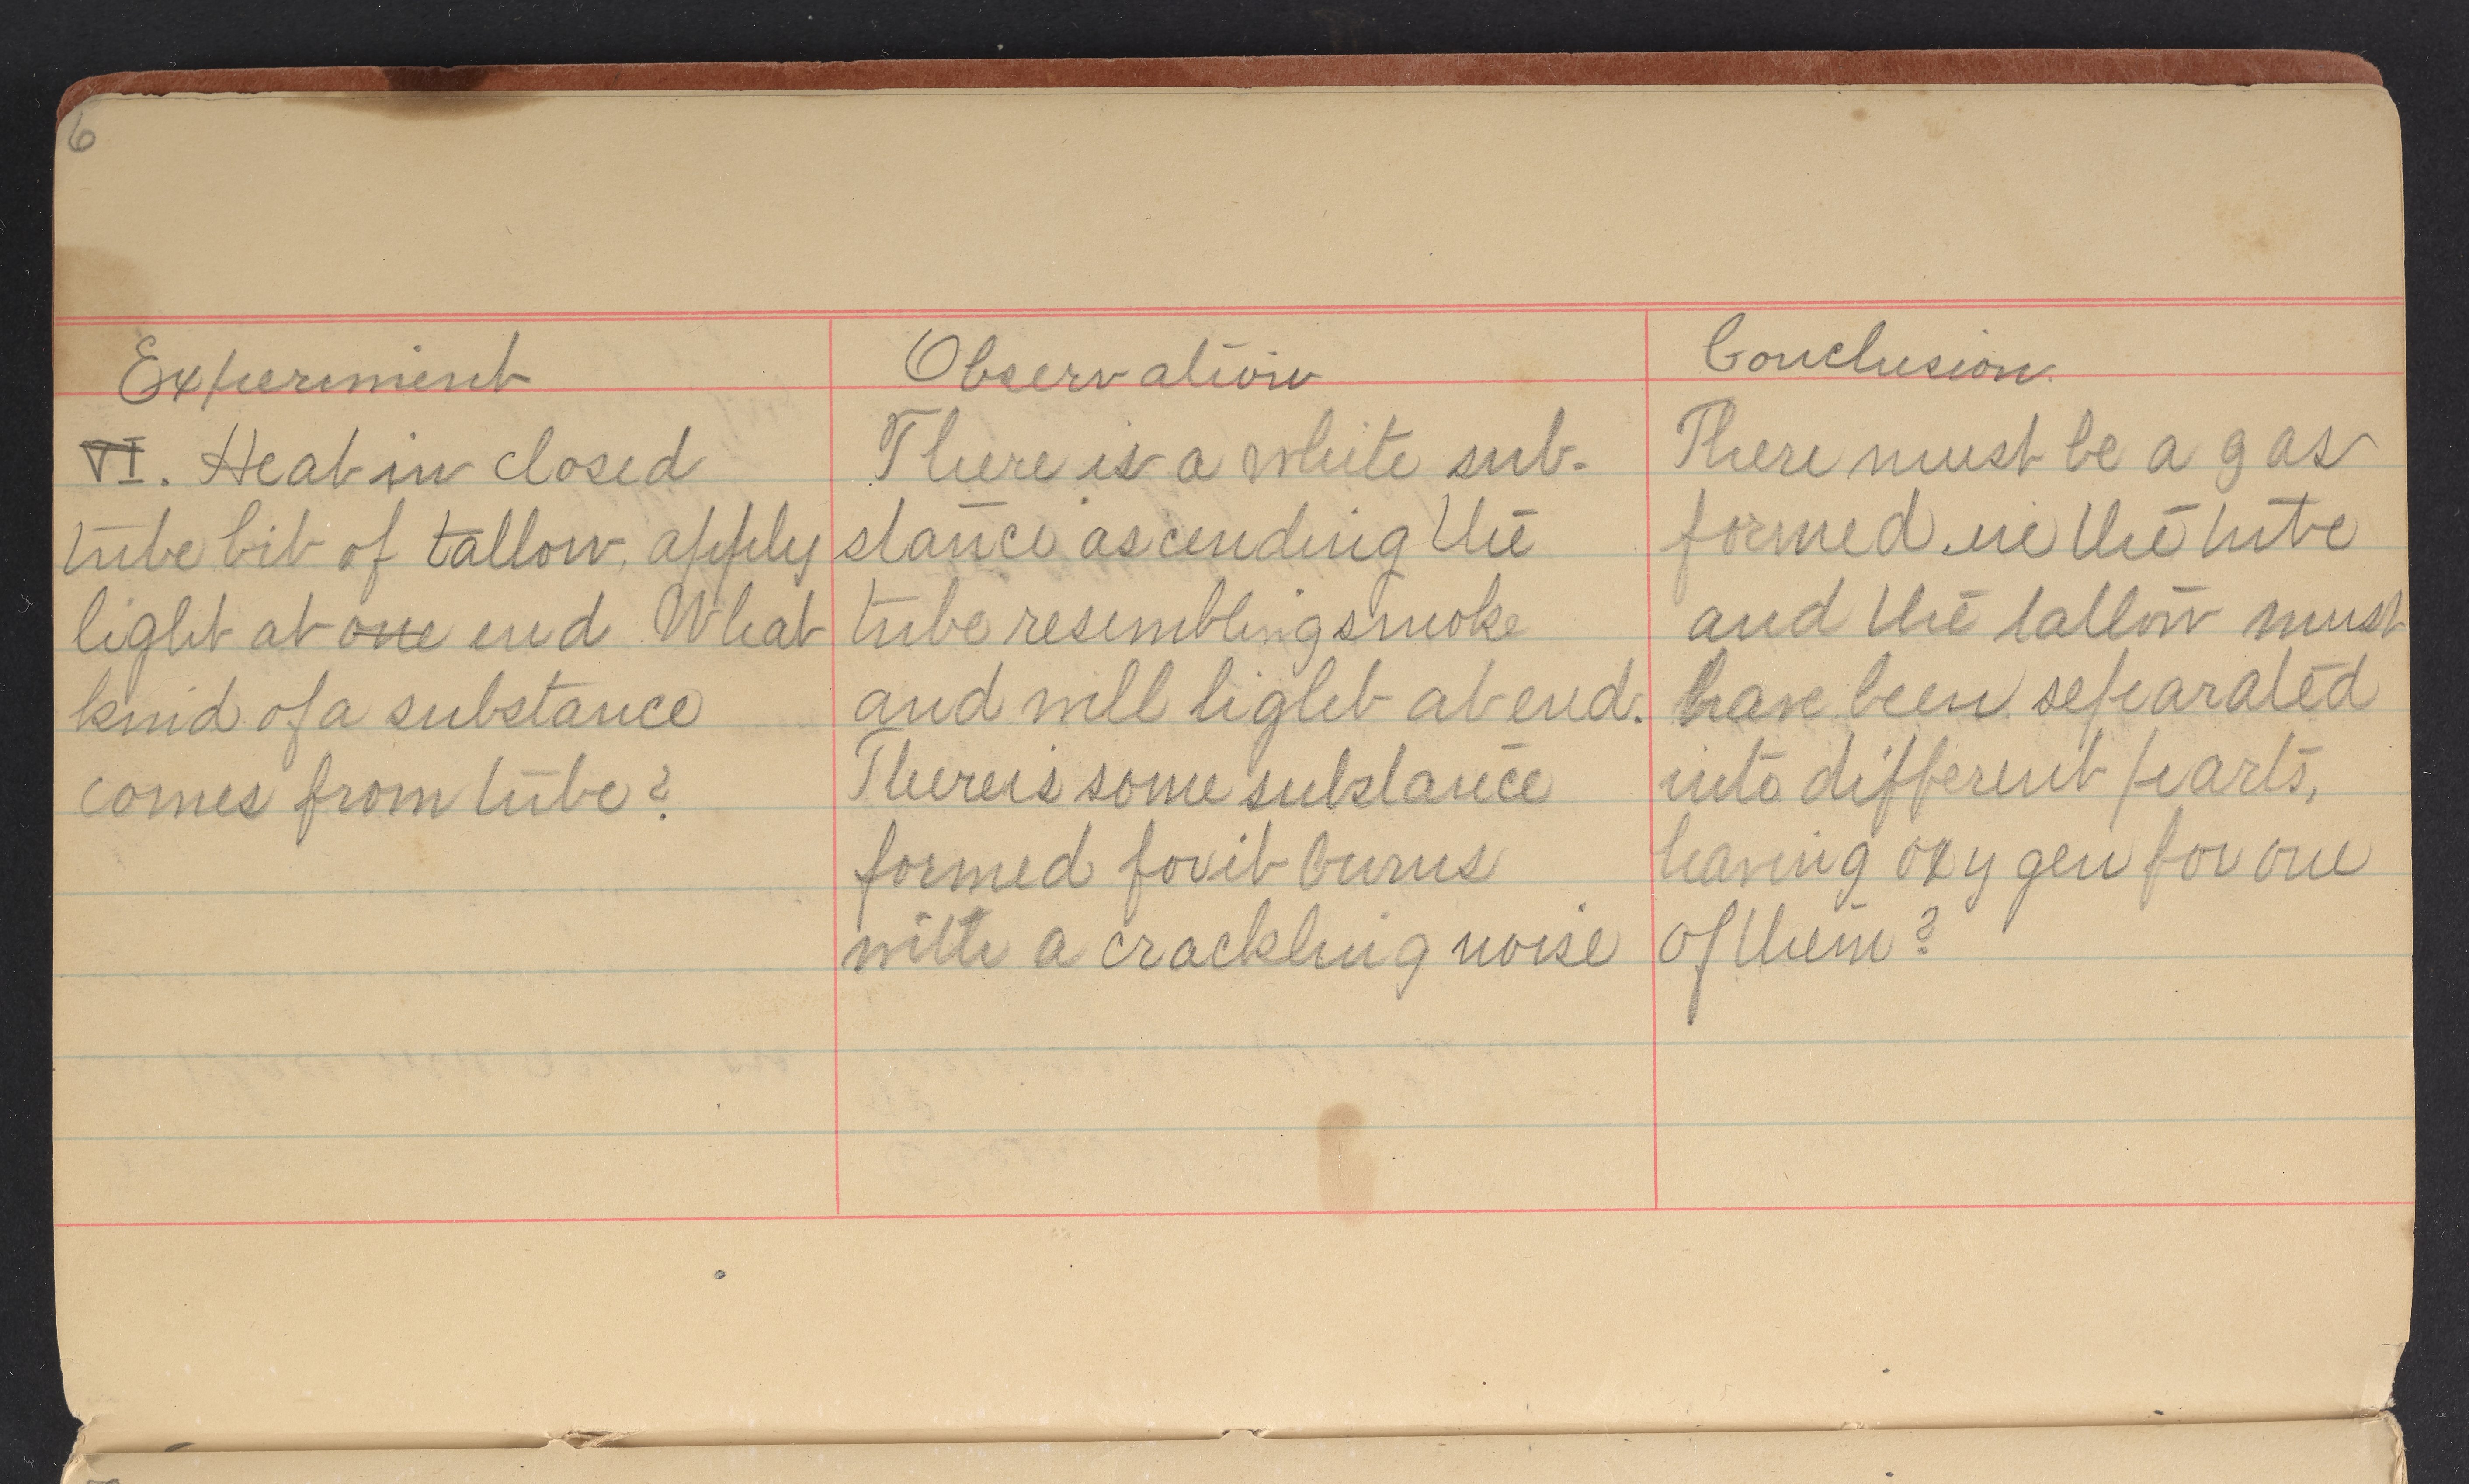 6
Experiment
VI. Heat in closed
tube bit of tallow, apply
light at one end. What
kind of a substance
comes from tube?
Observation
There is a white sub-
stance ascending the
tube resembling smoke
and will light at end.
There is some substance
formed for it burns
with a crackling noise
Conclusion.
There must be a gas
formed in the tube
and the tallow must
have been separated
into different parts,
having oxygen for one
of them?